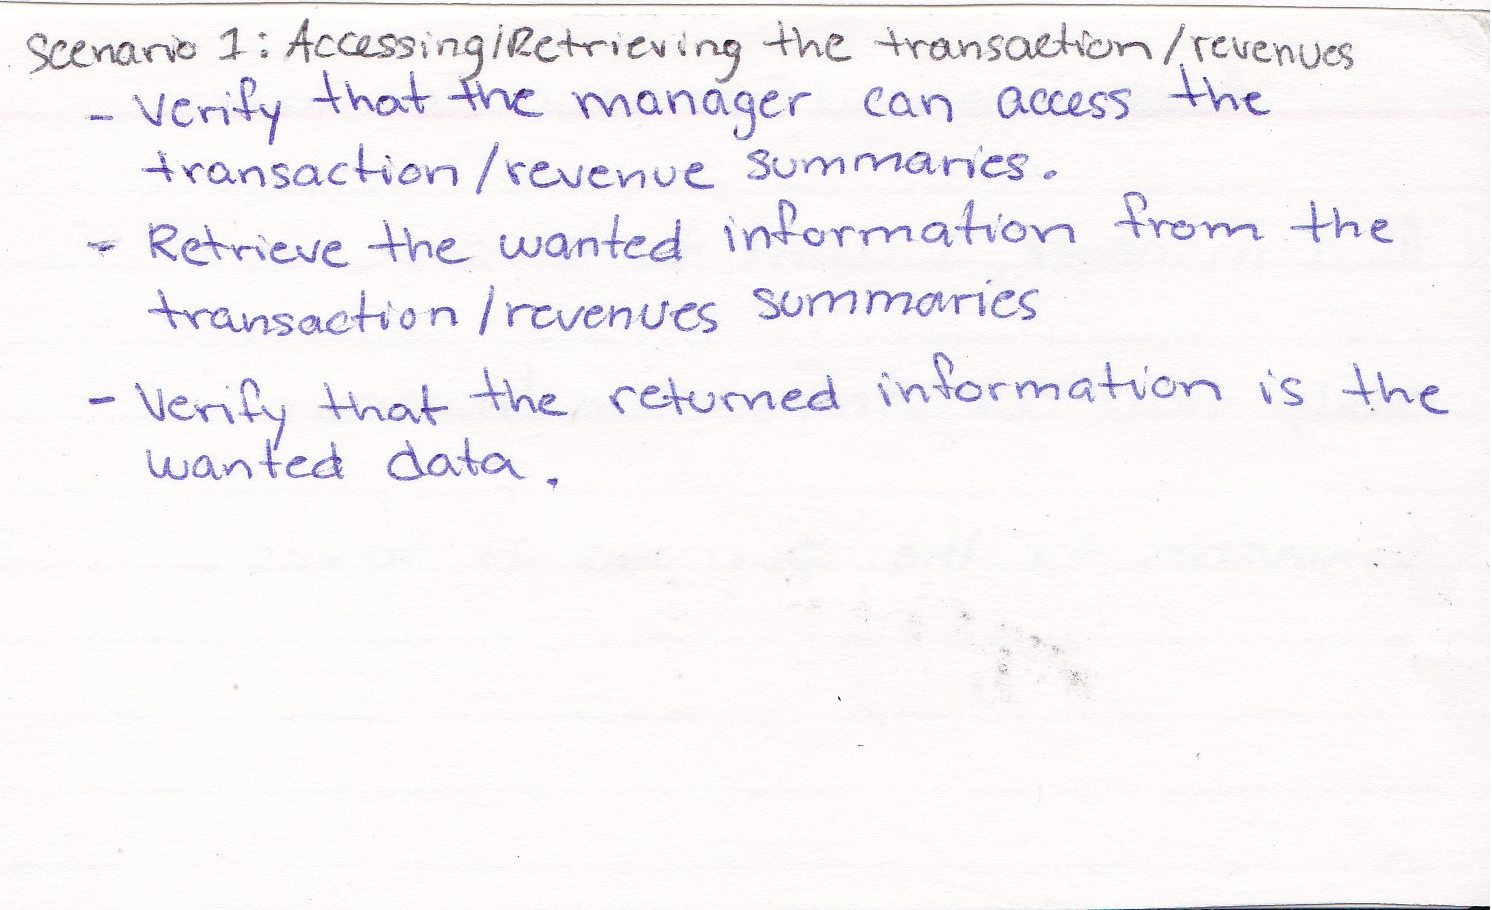 Scenario 1: Accessing/Retrieving the transaction/revenues
- Verify that the manager can access the
transaction/revenue summaries.
- Retrieve the wanted information from the
transaction/revenues summaries
- Verify that the returned information is the
wanted data.